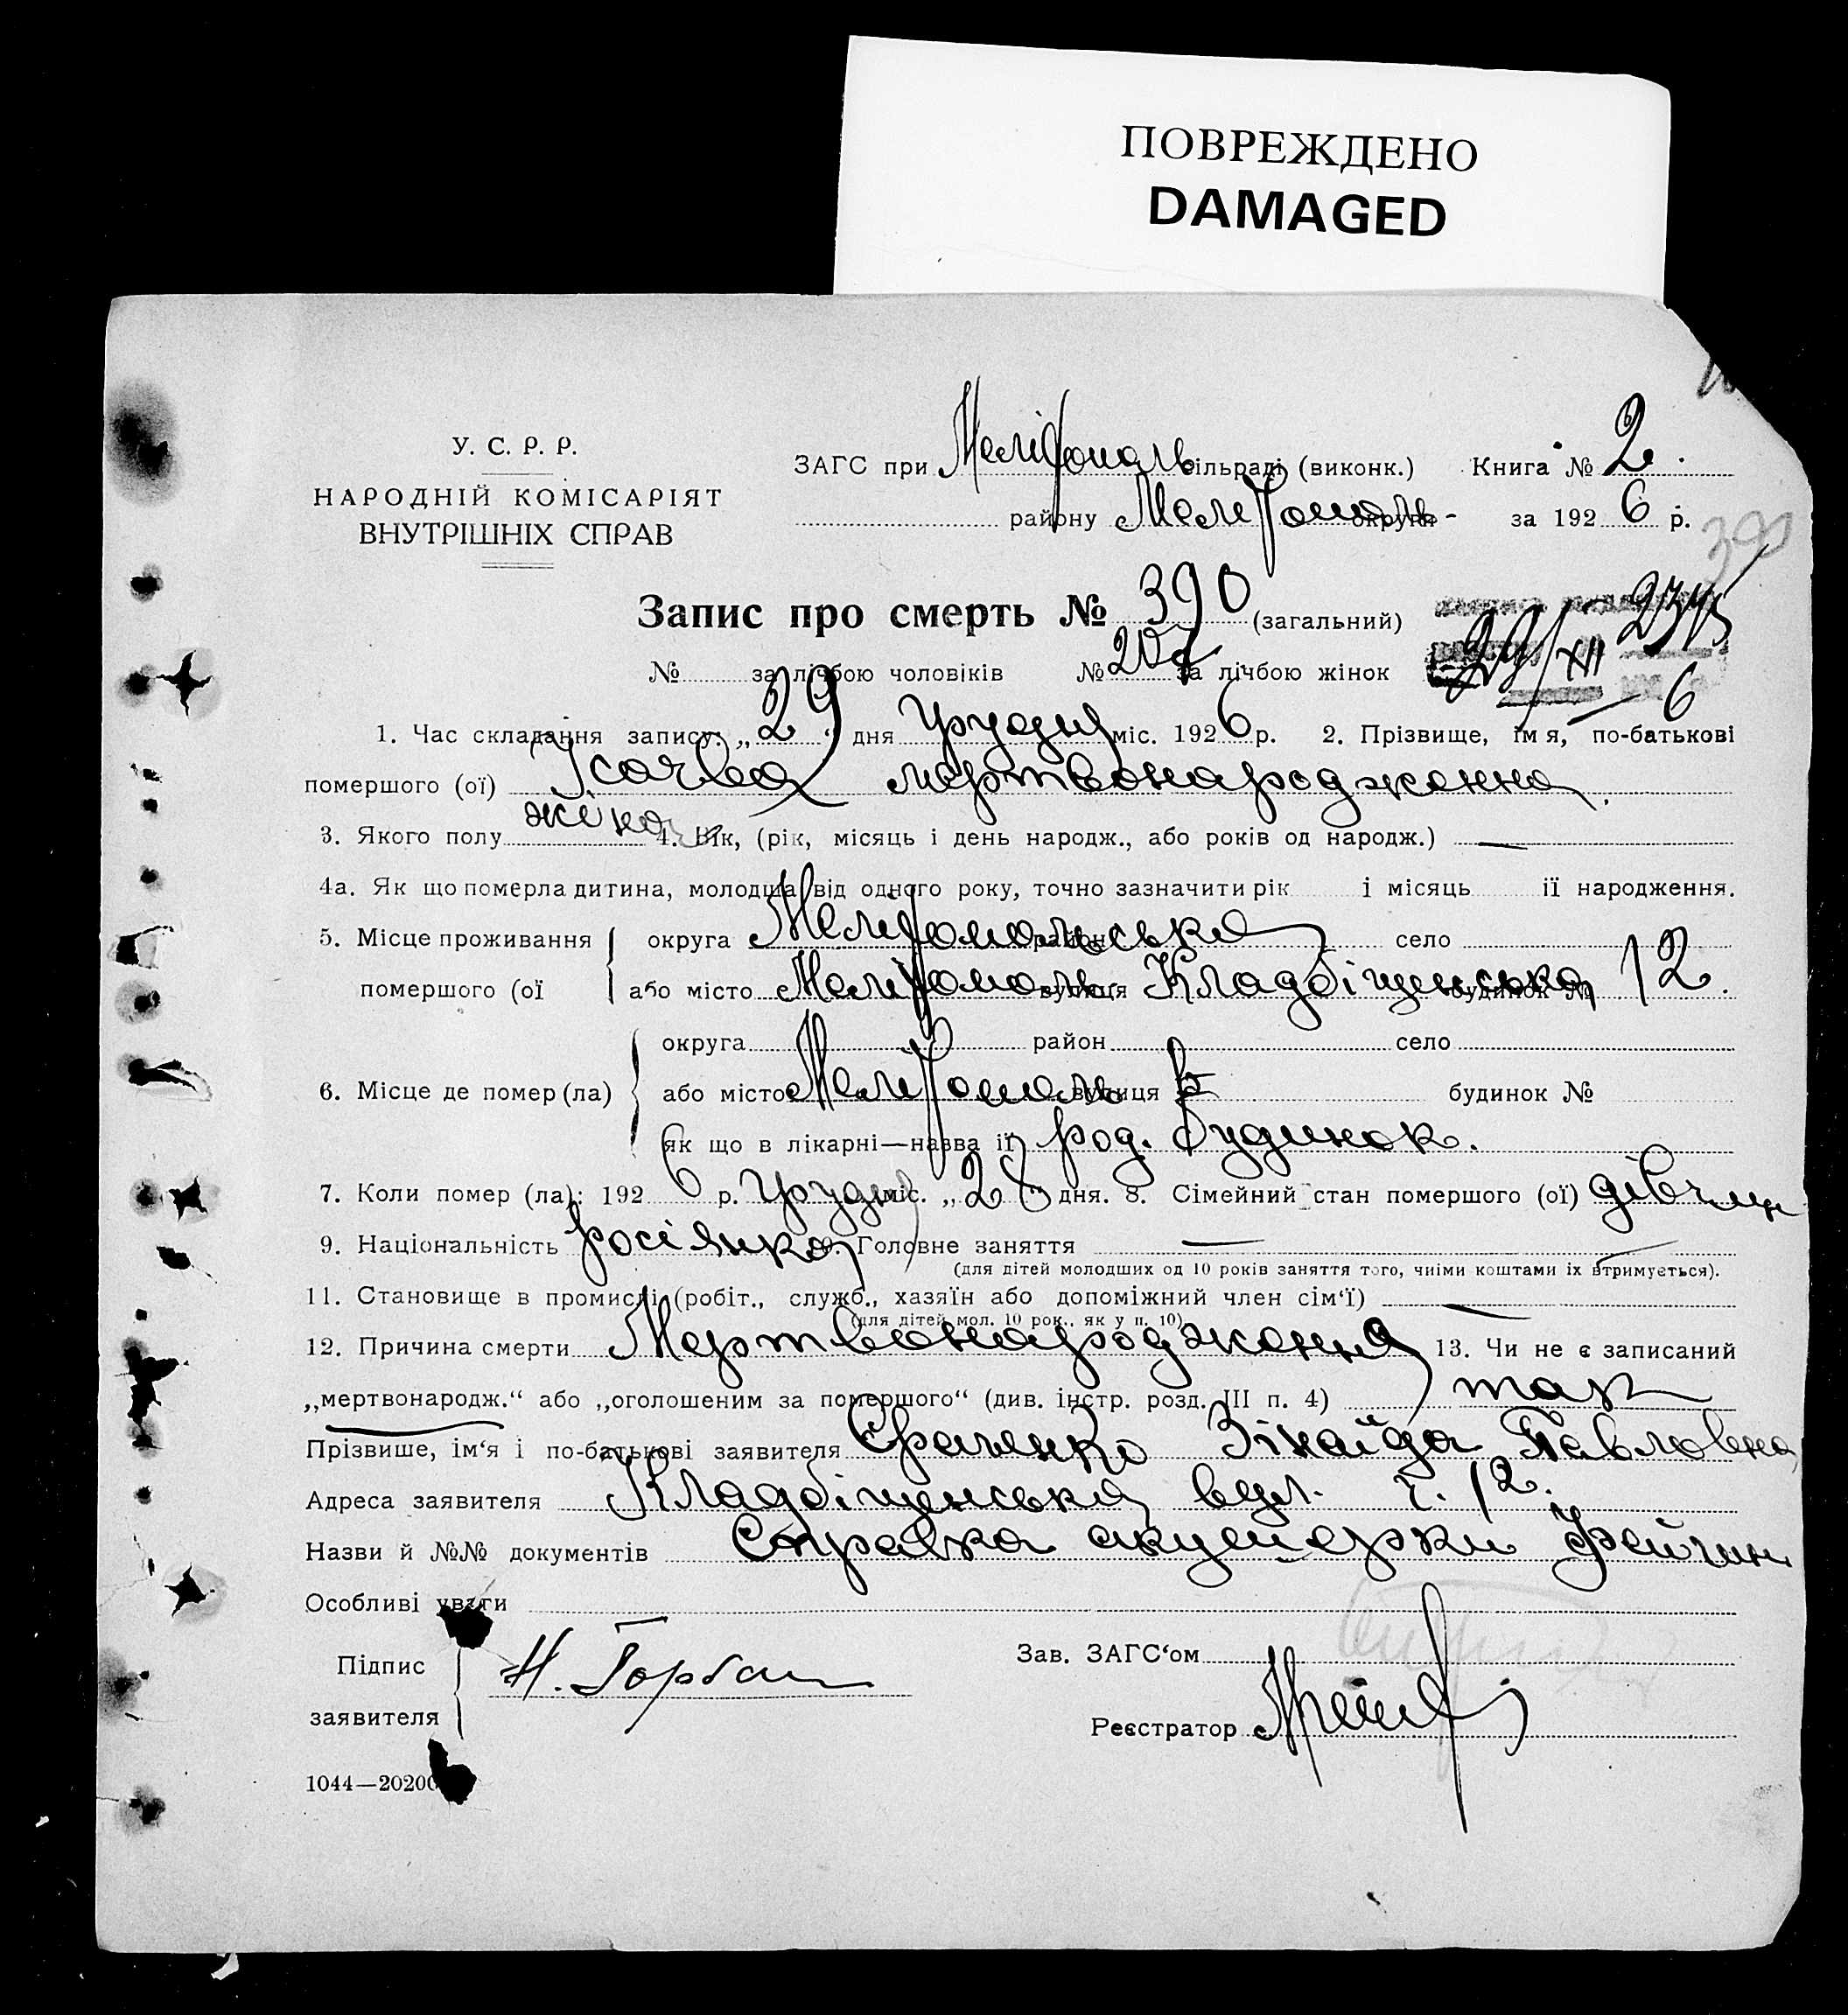 ПОВРЕЖДЕНО
DAMAGED
У. С. Р. Р.
НАРОДНІЙ КОМІСАРІЯТ
ВНУТРІШНІХ СПРАВ
ЗАГС при Меліtополь сільраді (виконк.) Книга № 2.
району Меліtополь округи - за 1926 р.
390
Запис про смерть № 390 (загальний)
2375
№ за лічбою чоловіків № 207 за лічбою жінок
29/XII 6
1. Час складання запису: „29“ дня грудня міс. 1926 р. 2. Прізвище, імя, по-батькові
помершого (ої) мертвонародженна.
3. Якого полу жіно 4. Вік, (рік, місяць і день народж., або років од народж.) —
4а. Як що померла дитина, молодша від одного року, точно зазначити рік і місяць її народження.
5. Місце проживання округа Меліtопольська район село
помершого (ої або місто Меліtополь вулиця Кладбіщенська будинок № 12.
округа район село
6. Місце де помер (ла) або місто Меліtополь вулиця будинок №
як що в лікарні—назва її род. будинок.
7. Коли помер (ла): 1926 р. грудня міс. „28“ дня. 8. Сімейний стан помершого (ої) дівчин
9. Національність росіянка 10. Головне заняття —
(для дітей молодших од 10 років заняття того, чиїми коштами їх втримується).
11. Становище в промислі (робіт., служб., хазяїн або допоміжний член сім‘ї) —
(для дітей мол. 10 рок., як у п. 10)
12. Причина смерти Мертвонародженна 13. Чи не є записаний
„мертвонародж.“ або „оголошеним за помершого“ (див. інстр. розд. III п. 4) так
Прізвише, ім‘я і по-батькові заявителя Зінаїда Павловна
Адреса заявителя Кладбіщенська вул. ч. 12.
Назви й №№ документів Справка акушерки
Особливі уваги
Підпис
заявителя
Н. Горбан
Зав. ЗАГС‘ом
Реєстратор
1044—2020